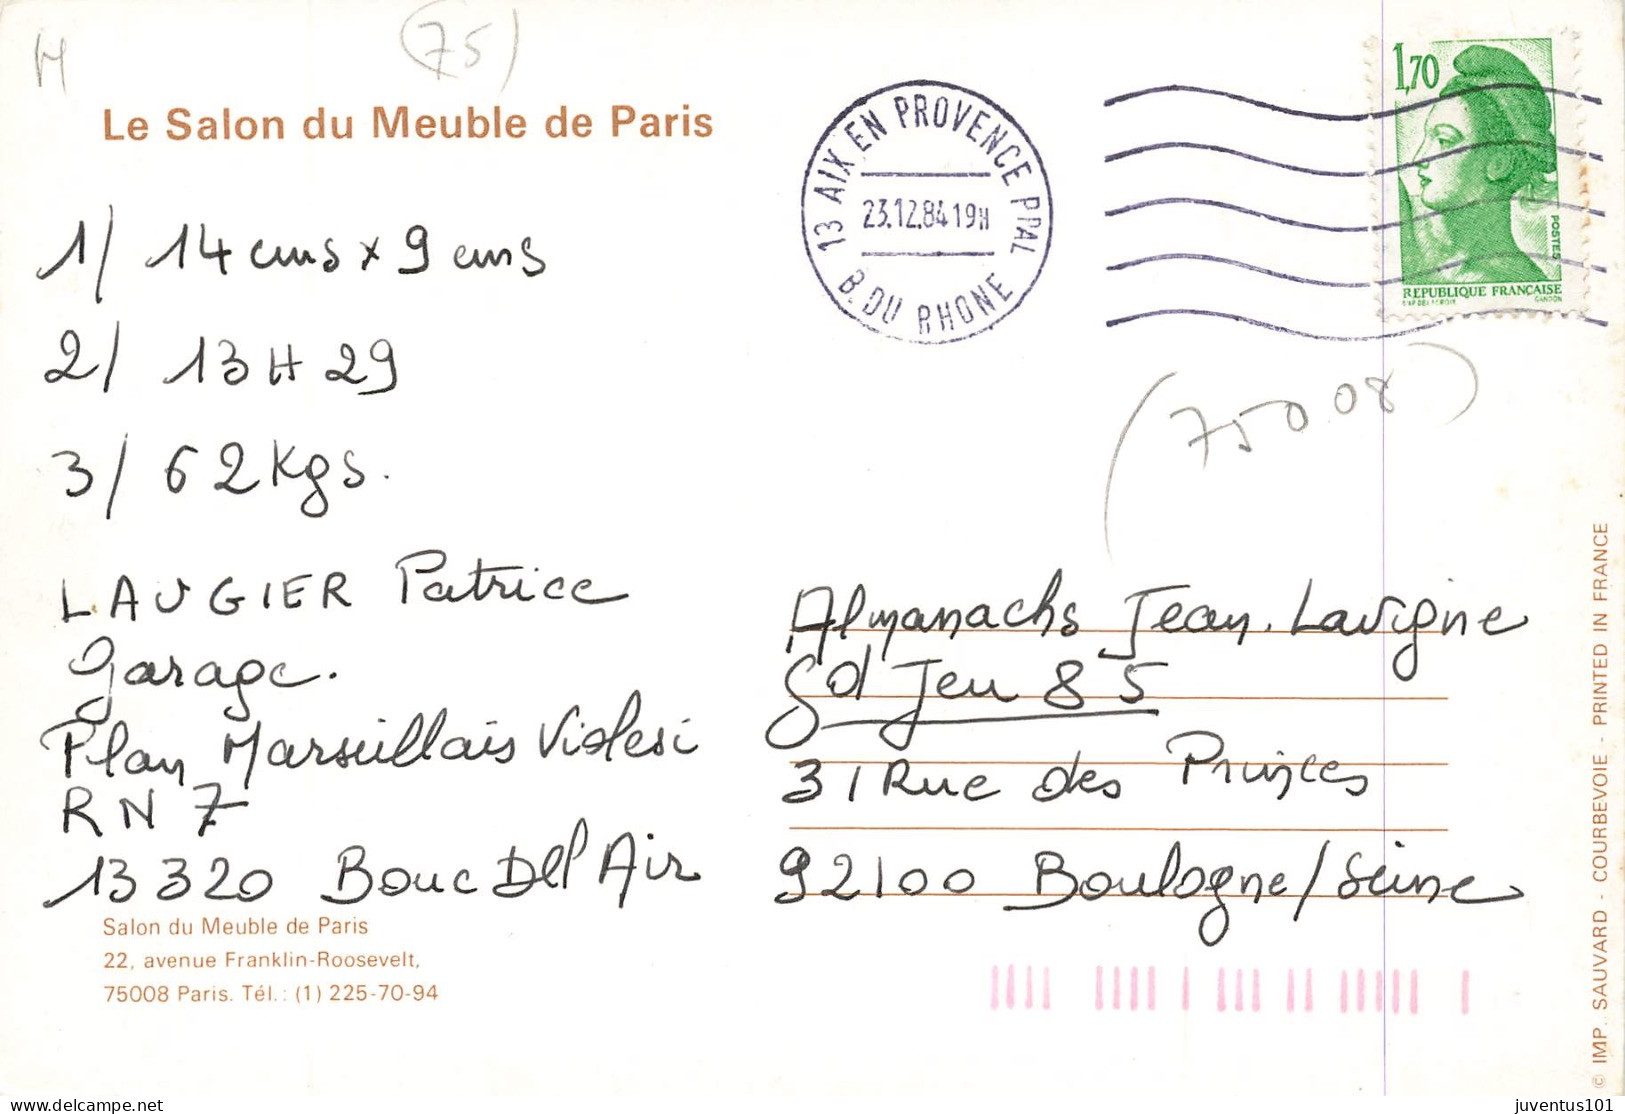 M
(75)
Le Salon du Meuble de Paris
1/ 14 cms x 9 cms
2/ 13 H 29
3/ 62 Kgs.
LAUGIER Patrice
Garage.
Plan Marseillais Violesi
RN 7
13320 Bouc Del Air
Salon du Meuble de Paris
22, avenue Franklin-Roosevelt,
75008 Paris. Tél. : (1) 225-70-94
13 AIX EN PROVENCE PPAL
23.12.84 19H
B. DU RHONE
1,70
POSTES
REPUBLIQUE FRANÇAISE
D'AP DELACROIX GANDON
(75008)
Almanachs Jean. Lavigne
Gd Jeu 85
31 Rue des Princes
92100 Boulogne/Seine
© IMP. SAUVARD - COURBEVOIE - PRINTED IN FRANCE
delcampe.net
juventus101